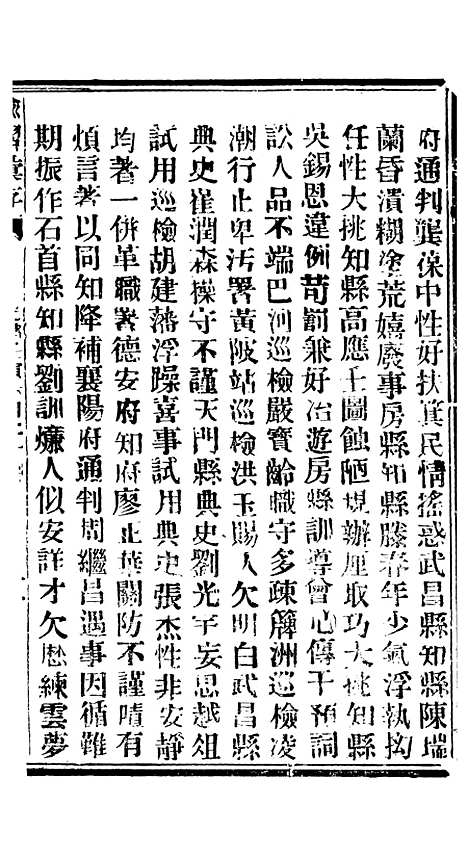 府通判龔葆中性好扶箕民情搖惑武昌縣知縣陳瑞
蘭昏潰糊塗荒嬉廢事房縣知縣滕春年少氣浮執拗
任性大挑知縣高應壬圖蝕陋規辦厘取巧大挑知縣
吳錫恩違例苛罰兼好冶遊房縣訓導曾心傳干預詞
訟人品不端巴河巡檢嚴寶齡職守多疎簰洲巡檢凌
潮行止卑汚署黃陂站巡檢洪玉賜人欠明白武昌縣
典史崔潤森操守不謹天門縣典史劉光宇妄思越俎
試用巡檢胡建藩浮躁喜事試用典史張杰性非安靜
均著一併革職署德安府知府廖正華關防不謹嘖有
煩言著以同知降補襄陽府通判周繼昌遇事因循難
期振作石首縣知縣劉訓㷠人似安詳才欠歷練雲夢